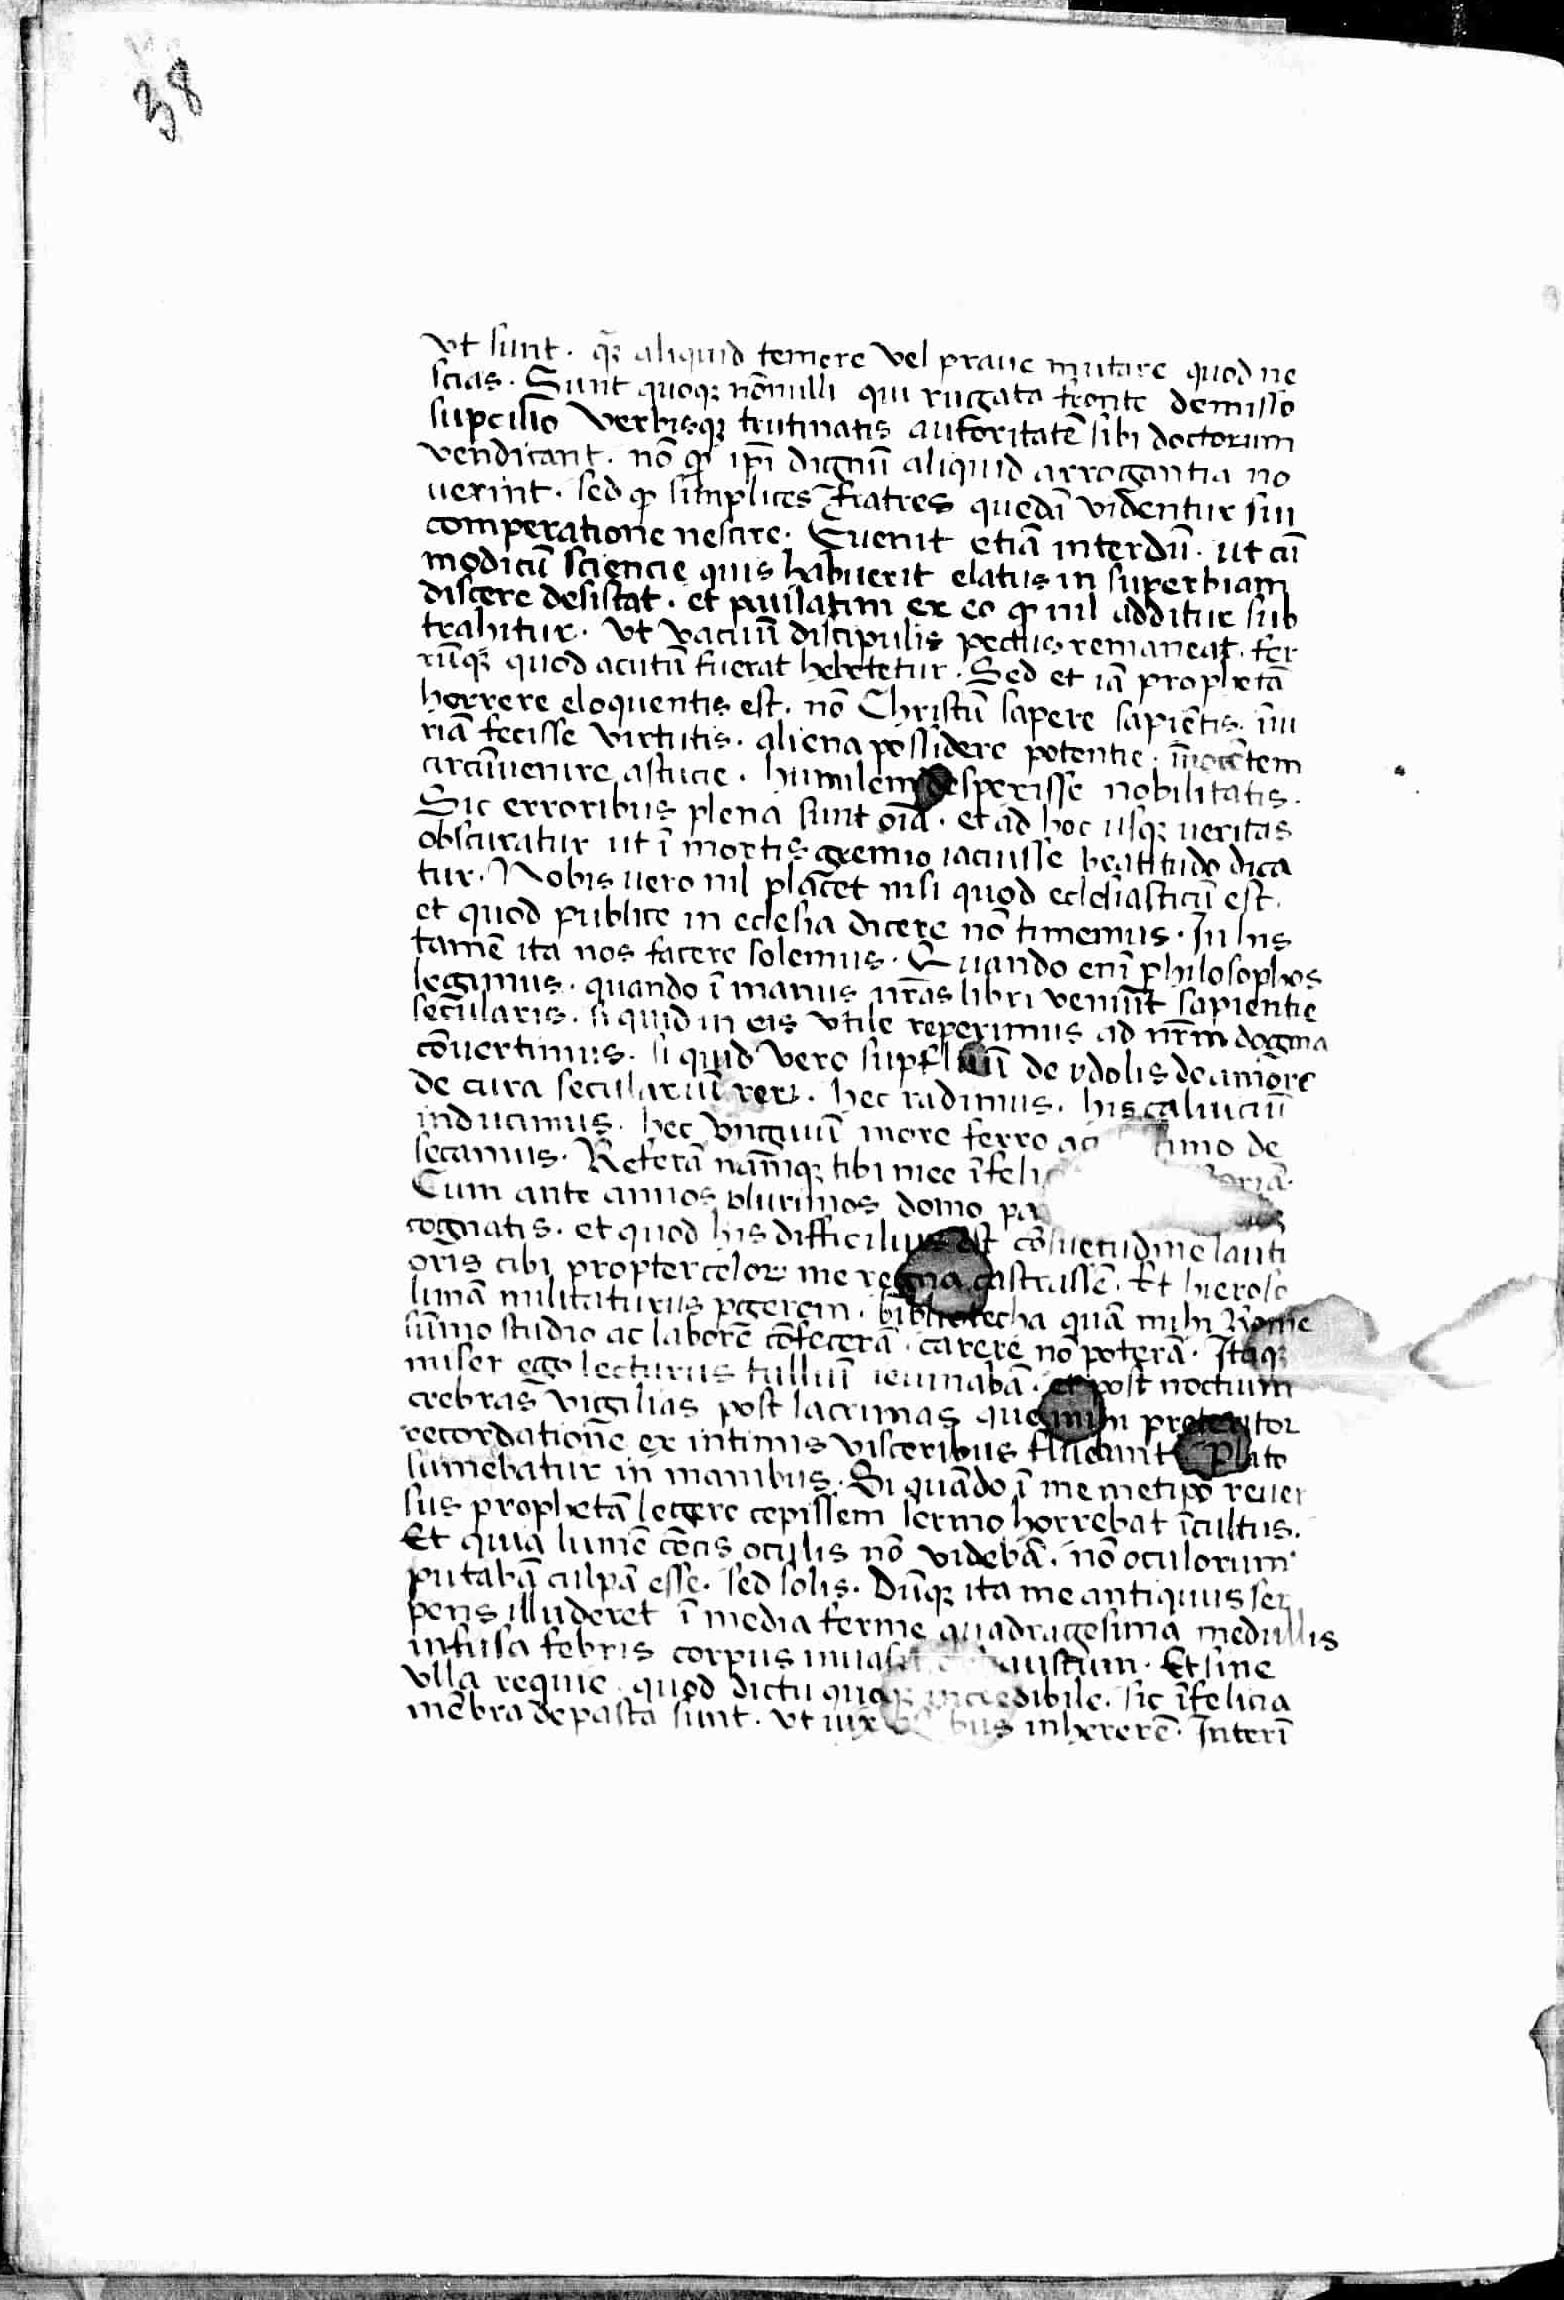 38
vt sunt. qꝫ aliquid temere vel praue mutare quod ne
scias. Sunt quoqꝫ nōnulli qui rugata fronte demisso
supcilio verbisqꝫ trutinatis autoritatē sibi doctorum
venditant. nō ꝙ ip̄i dignū aliquid arrogantia no
uerint. sed ꝙ simplices fratres quedā videntur sui
comperatione nescire. Euenit etiā interdū. ut cū
modicū sciencie quis habuerit elatus in superbiam
discere desistat. et paulatim ex eo ꝙ nil additur sub
trahitur. vt vacuū discipulis pectus remaneat. fer
rūqꝫ quod acutū fuerat hebetetur. Sed et iā prophetā
horrere eloquentis est. nō Christū sapere sapiētis. īiu
riā fecisse virtutis. aliena possidere potentie. īnocētem
circūuenire astucie. humilem desperisse nobilitatis.
Sic erroribus plena sunt oīa. et ad hoc usqꝫ ueritas
obscuratur ut ī mortis gremio iacuisse beatitudo dica
tur. Nobis uero nil placet nisi quod eclesiasticū est.
et quod publice in eclesia dicere nō timemus. In his
tamē ita nos facere solemus. Quando enī philosophos
legimus. quando ī manus nr̄as libri veniūt sapientie
secularis. si quid in eis vtile reperimus ad nr̄m dogma
cōuertimus. si quid vero supfluū de ydolis de amore
de cura seculariū rerꝝ. hec radimus. his caluiciū
inducimus. hec vnguiū more ferro de
secamus. Referā nāqꝫ tibi mee
Cum ante annos plurimos domo
cognatis. et quod his difficilius est cōsuetudine lauti
oris cibi propter celorꝝ me regna castrassē. Et hieroso
limā militaturus pgerem. bibliotecha quā mihi Rome
sūmo studio ac laborē cōfecerā. carere nō poterā. Itaqꝫ
miser ego lecturus tulliū ieiunabā. et post noctium
crebras vigilias post lacrimas que mihi preteritorꝝ
recordatione ex intimis visceribus fluebant Plato
sumebatur in manibus. Si quādo ī me metipo reuer
sus prophetā legere cepissem sermo horrebat īcultus.
Et quia lumē cecis oculis nō videbā. nō oculorum
putabā culpā esse. sed solis. Dūqꝫ ita me antiquus ser
pens illuderet ī media ferme quadragesima medullis
infusa febris corpus inuasit Et sine
vlla requie. quod dictu quoqꝫ incredibile. sic īfelicia
mēbra depasta sunt. vt uix inhererē. Interī